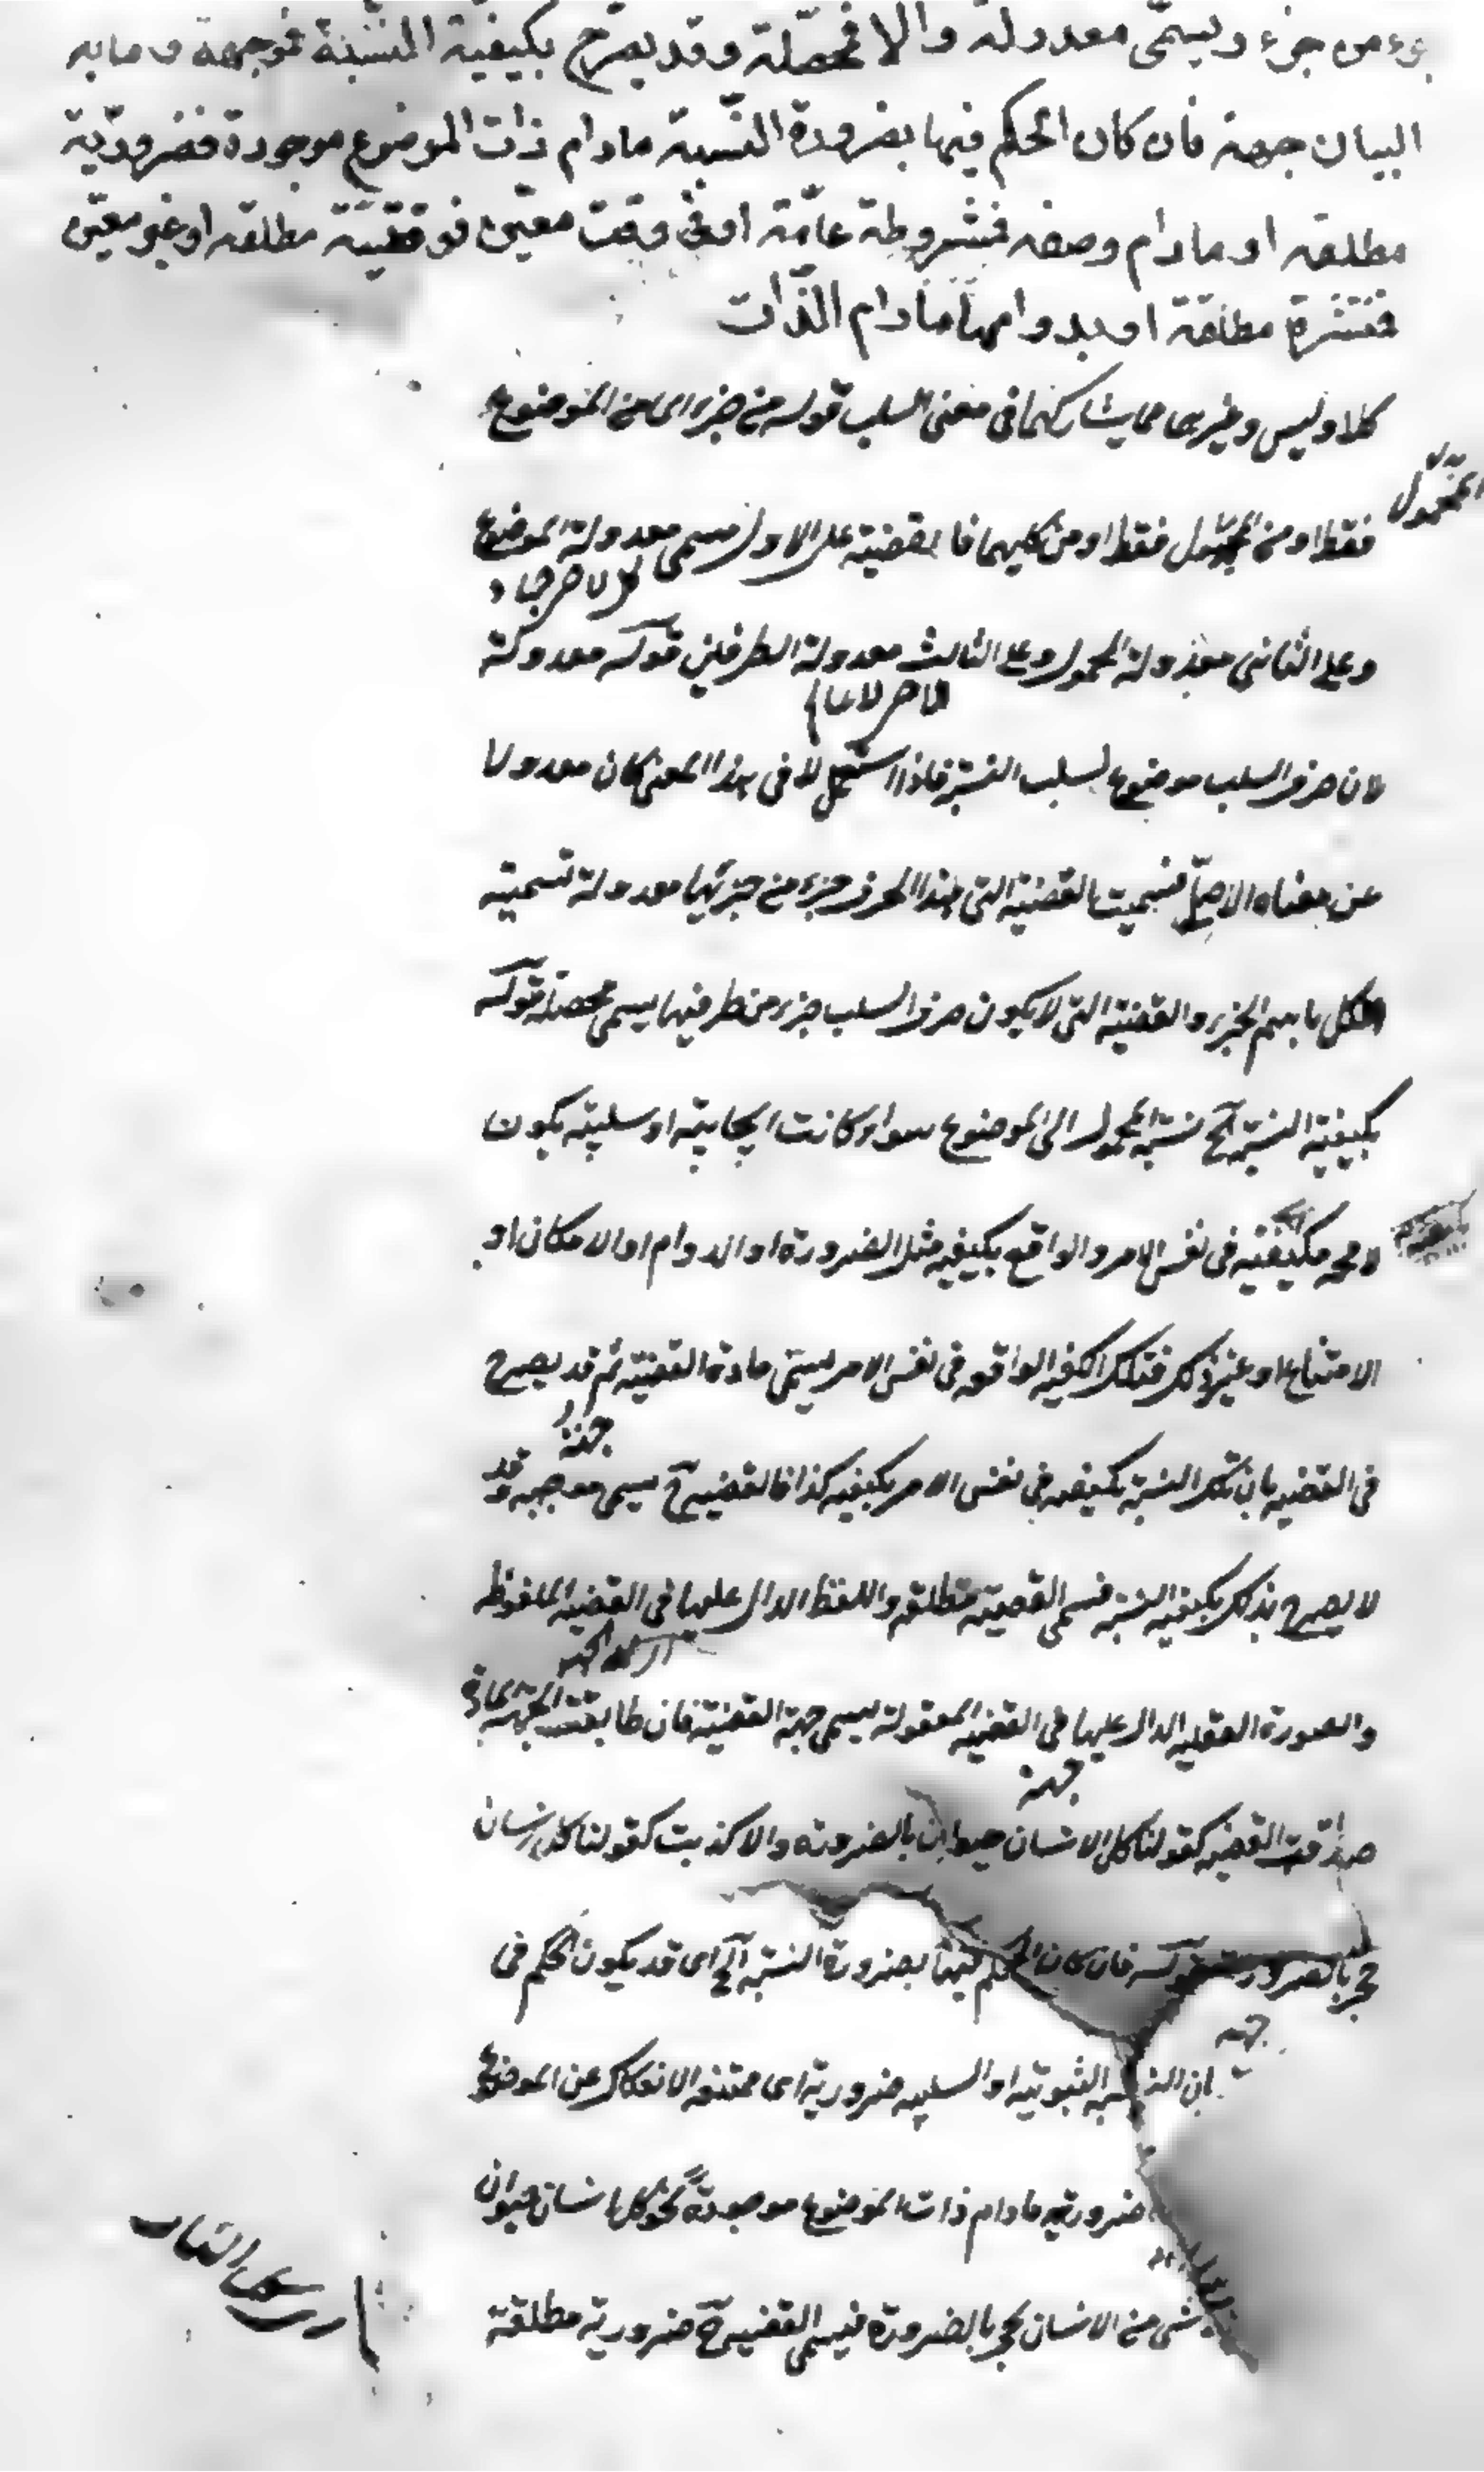 جزء من جزء ويسمّى معدولة والا فمحصّلة وقد يصرّح بكيفيّة النسّبة فموجهة وما به
البيان جهة فان كان الحكم فيها بضرورة النّسبة مادام ذات الموضوع موجودة فضروريّة
مطلقه او مادام وصفه فمشروطة عامّة او فى وقت معيّن فوقتيّة مطلقه او غير معيّن
فمنتشرة مطلقة او بدوامها مادام الذّات
كلا وليس وغيرهما مما يشاركهما فى معنى السلب قوله من جزء اى من الموضوع
المحمول
فقط او من المحمول فقط او من كليهما فالقضية على الاول يسمى معدولة الموضوع
وعلى الثانى معدولة المحمول وعلى الثالث معدولة الطرفين قوله معدولة
لان حرف السلب موضوع لسلب النسبة فاذا استعمل لا فى هذا المعنى كان معدولا
عن معناه الاصلى فسميت القضية التى هذا الحرف جزء من جزئيها معدولة تسمية
الكل باسم الجزء والقضية التى لا يكون حرف السلب جزء من طرفيها يسمى محصلة قوله
بكيفية النسبة آه نسبة المحمول الى الموضوع سواء كانت ايجابية او سلبية يكون
لا محة مكيفية فى نفس الامر والواقع بكيفيه مثل الضرورة او الدوام او الامكان او
الامتناع او غير ذلك فتلك الكيفيه الواقعه فى نفس الامر يسمى مادة القضية ثم قد يصرح
فى القضيه بان تلك النسبة مكيفه فى نفس الامر بكيفيه كذا فالقضيه ح يسمى موجهه وقد
لا يصرح بذلك بكيفيه النسبة فيسمى القضية مطلقه واللفظ الدال عليها فى القضيه الملفوظه
والصورة العقليه الدال عليها فى القضيه المعقولة يسمى جهة القضية فان طابقت الجهة المادة
جهة
صدقت القضيه كقولنا كل الانسان حيوان بالضرورة والا كذبت كقولنا كل انسان
حجر بالضرورة قوله فان كان الحكم فيها بضرورة النسبة آه اى قد يكون الحكم فى
جهه
بان النسبه الثبوتيه او السلبيه ضرورية اى ممتنعه الانفكاك عن الموضوع
ضروريه مادام ذات الموضوع موجودة نحو كل انسان حيوان
شى من الانسان بحجر بالضرورة فيسمى القضيه ح ضرورية مطلقة